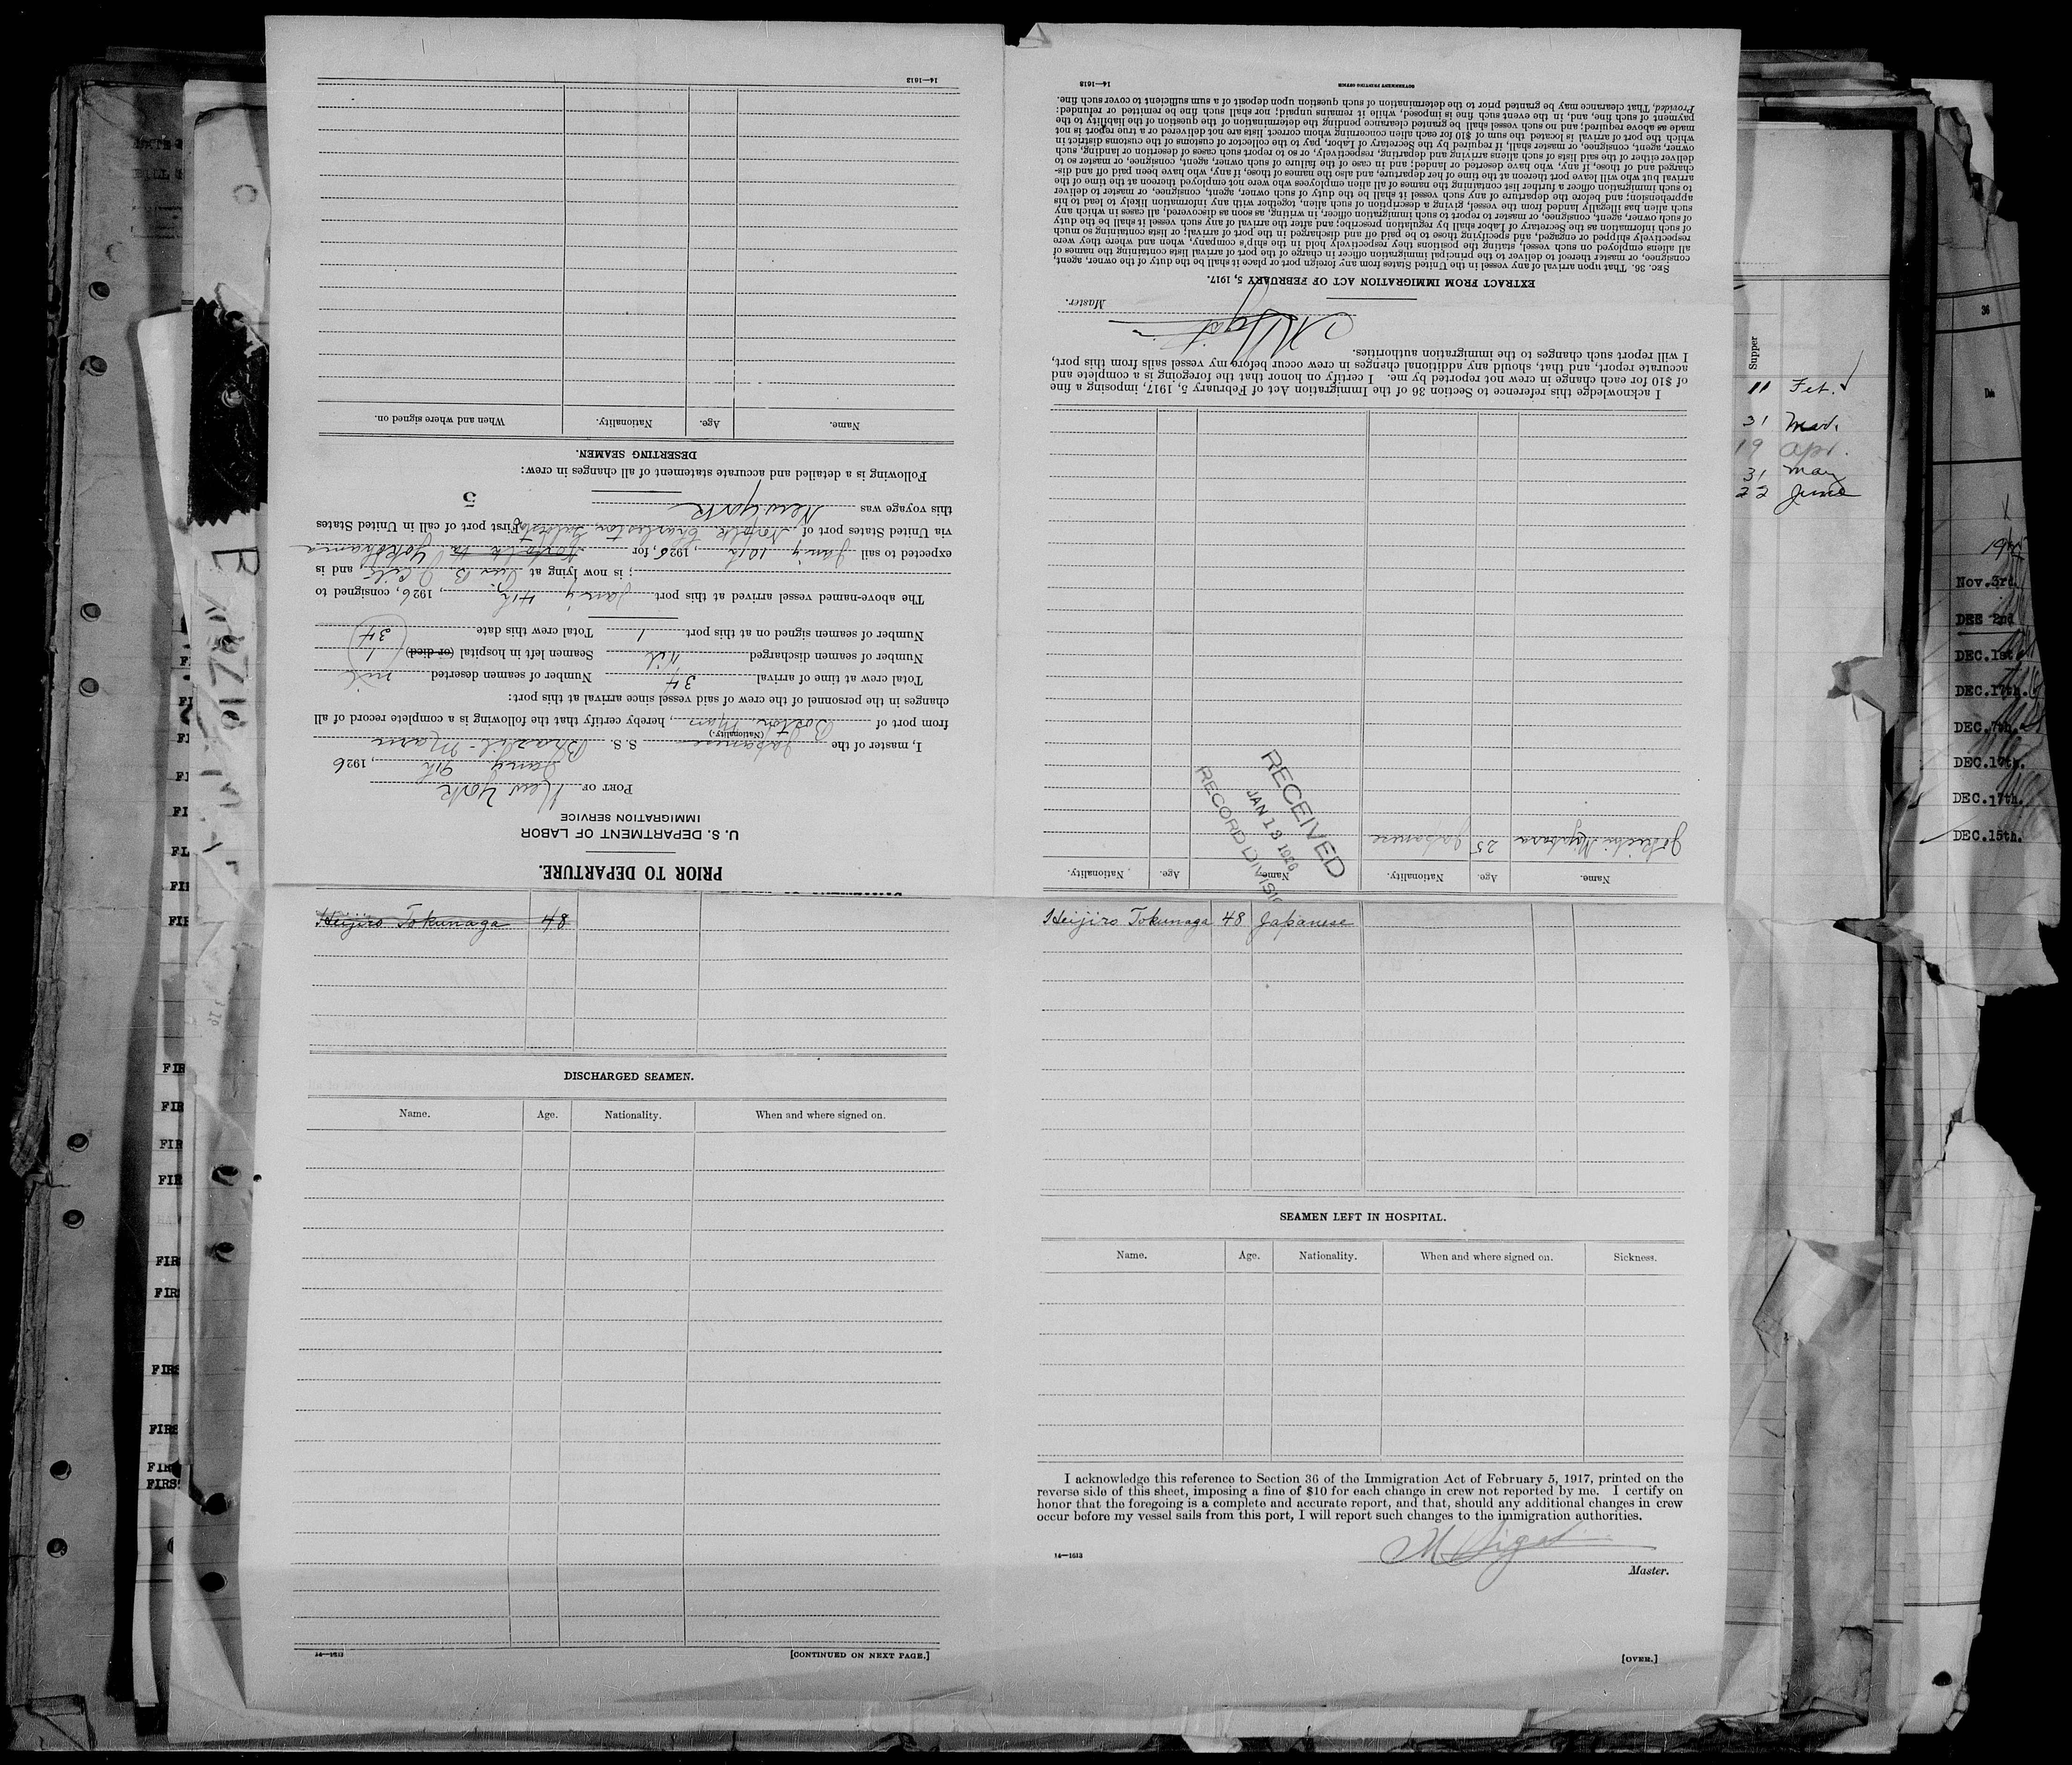 PRIOR TO DEPARTURE.
U. S. DEPARTMENT OF LABOR
IMMIGRATION SERVICE
PORT OF New York
Jany 9th, 1926
I, master of the Japanese S. S. Brazil-Maru
(Nationality.)
from port of Boston Mass, hereby certify that the following is a complete record of all
changes in the personnel of the crew of said vessel since arrival at this port:
Total crew at time of arrival 34 Number of seamen deserted nil
Number of seamen discharged Nil Seamen left in hospital (or died) 1
Number of seamen signed on at this port 1 Total crew this date 34
The above-named vessel arrived at this port Jany 4th, 1926, consigned to
; is now lying at , and is
expected to sail Jany 10th, 1926, for Yokohama
via United States port of Norfolk Charleston First port of call in United States
this voyage was New York
5
Following is a detailed and accurate statement of all changes in crew:
DESERTING SEAMEN.
Name. Age. Nationality. When and where signed on.
14—1613
Name. Age. Nationality. Name. Age. Nationality.
25 Japanese
RECEIVED
JAN 13 1926
RECORD DIVISIO
I acknowledge this reference to Section 36 of the Immigration Act of February 5, 1917, imposing a fine
of $10 for each change in crew not reported by me. I certify on honor that the foregoing is a complete and
accurate report, and that, should any additional changes in crew occur before my vessel sails from this port,
I will report such changes to the immigration authorities.
Master.
EXTRACT FROM IMMIGRATION ACT OF FEBRUARY 5, 1917.
SEC. 36. That upon arrival of any vessel in the United States from any foreign port or place it shall be the duty of the owner, agent,
consignee, or master thereof to deliver to the principal immigration officer in charge of the port of arrival lists containing the names of
all aliens employed on such vessel, stating the positions they respectively hold in the ship's company, when and where they were
respectively shipped or engaged, and specifying those to be paid off and discharged in the port of arrival; or lists containing so much
of such information as the Secretary of Labor shall by regulation prescribe; and after the arrival of any such vessel it shall be the duty
of such owner, agent, consignee, or master to report to such immigration officer, in writing, as soon as discovered, all cases in which any
such alien has illegally landed from the vessel, giving a description of such alien, together with any information likely to lead to his
apprehension; and before the departure of any such vessel it shall be the duty of such owner, agent, consignee, or master to deliver
to such immigration officer a further list containing the names of all alien employees who were not employed thereon at the time of the
arrival but who will leave port thereon at the time of her departure, and also the names of those, if any, who have been paid off and dis-
charged and of those, if any, who have deserted or landed; and in case of the failure of such owner, agent, consignee, or master so to
deliver either of the said lists of such aliens arriving and departing, respectively, or so to report such cases of desertion or landing, such
owner, agent, consignee, or master shall, if required by the Secretary of Labor, pay to the collector of customs of the customs district in
which the port of arrival is located the sum of $10 for each alien concerning whom correct lists are not delivered or a true report is not
made as above required; and no such vessel shall be granted clearance pending the determination of the question of the liability to the
payment of such fine, and, in the event such fine is imposed, while it remains unpaid; nor shall such fine be remitted or refunded:
Provided, That clearance may be granted prior to the determination of such question upon deposit of a sum sufficient to cover such fine.
14—1613 GOVERNMENT PRINTING OFFICE
Heijiro Tokunaga 48
DISCHARGED SEAMEN.
Name. Age. Nationality. When and where signed on.
14—1613 [CONTINUED ON NEXT PAGE.]
Heijiro Tokunaga 48 Japanese
SEAMEN LEFT IN HOSPITAL.
Name. Age. Nationality. When and where signed on. Sickness.
I acknowledge this reference to Section 36 of the Immigration Act of February 5, 1917, printed on the
reverse side of this sheet, imposing a fine of $10 for each change in crew not reported by me. I certify on
honor that the foregoing is a complete and accurate report, and that, should any additional changes in crew
occur before my vessel sails from this port, I will report such changes to the immigration authorities.
14—1613
Master.
[OVER.]
Supper
11 Feb.
31 Mar.
19 Apr.
31 May
22 June
36
Date
Nov. 3rd.
DEC 2nd
DEC. 1st
DEC. 17th.
DEC. 7th.
DEC. 17th.
DEC. 17th.
DEC. 15th.